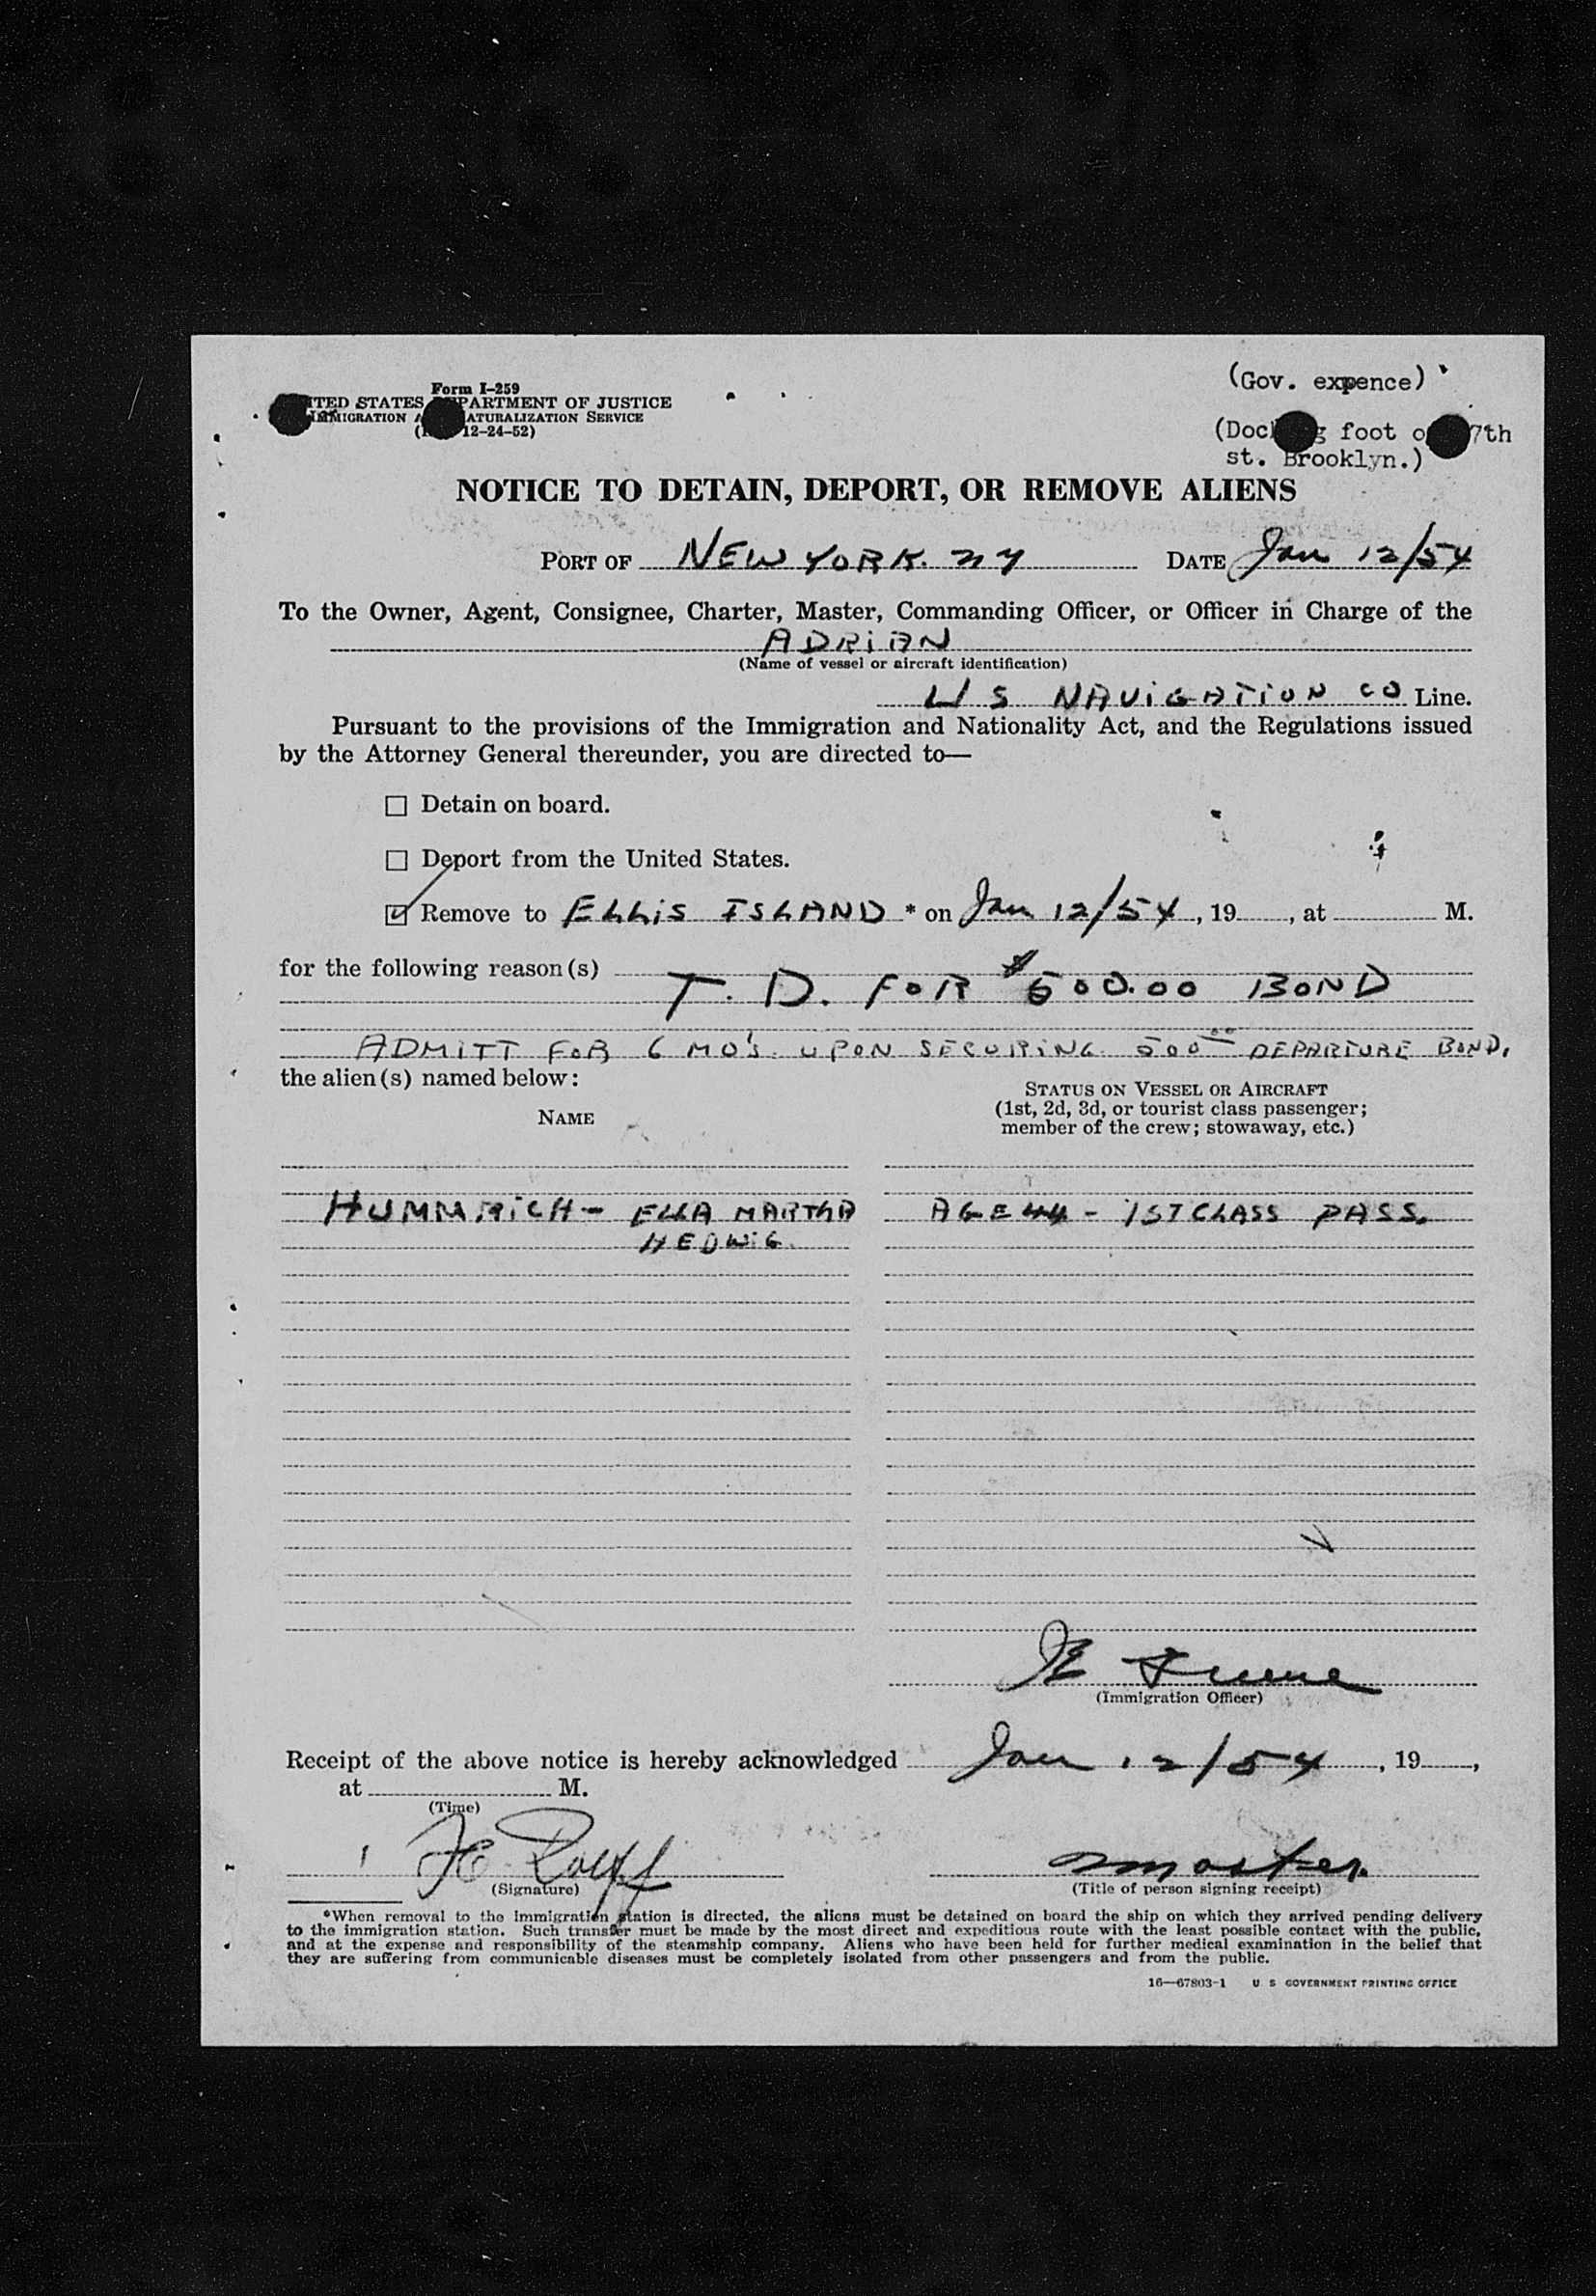 Form I-259
ITED STATES PARTMENT OF JUSTICE
IMMIGRATION A ATURALIZATION SERVICE
12-24-52)
(Gov. expence)
(Doc g foot o 7th
st. Brooklyn.)
NOTICE TO DETAIN, DEPORT, OR REMOVE ALIENS
PORT OF NEW YORK. NY DATE Jan 12/54
To the Owner, Agent, Consignee, Charter, Master, Commanding Officer, or Officer in Charge of the
ADRIAN
(Name of vessel or aircraft identification)
U S NAVIGATION CO Line.
Pursuant to the provisions of the Immigration and Nationality Act, and the Regulations issued
by the Attorney General thereunder, you are directed to—
☐ Detain on board.
☐ Deport from the United States.
☑ Remove to ELLIS ISLAND * on Jan 12/54, 19 , at M.
for the following reason(s)
T. D. FOR $500.00 BOND
ADMITT FOR 6 MO'S. UPON SECURING 500 00 DEPARTURE BOND.
the alien(s) named below:
NAME
STATUS ON VESSEL OR AIRCRAFT
(1st, 2d, 3d, or tourist class passenger;
member of the crew; stowaway, etc.)
HUMMRICH - ELLA MARTHA AGE 44 - 1ST CLASS PASS.
HEDWIG.
(Immigration Officer)
Receipt of the above notice is hereby acknowledged Jan 12/54, 19 ,
at M.
(Time)
master.
(Signature) (Title of person signing receipt)
*When removal to the immigration station is directed, the aliens must be detained on board the ship on which they arrived pending delivery
to the immigration station. Such transfer must be made by the most direct and expeditious route with the least possible contact with the public,
and at the expense and responsibility of the steamship company. Aliens who have been held for further medical examination in the belief that
they are suffering from communicable diseases must be completely isolated from other passengers and from the public.
16—67803-1 U S GOVERNMENT PRINTING OFFICE